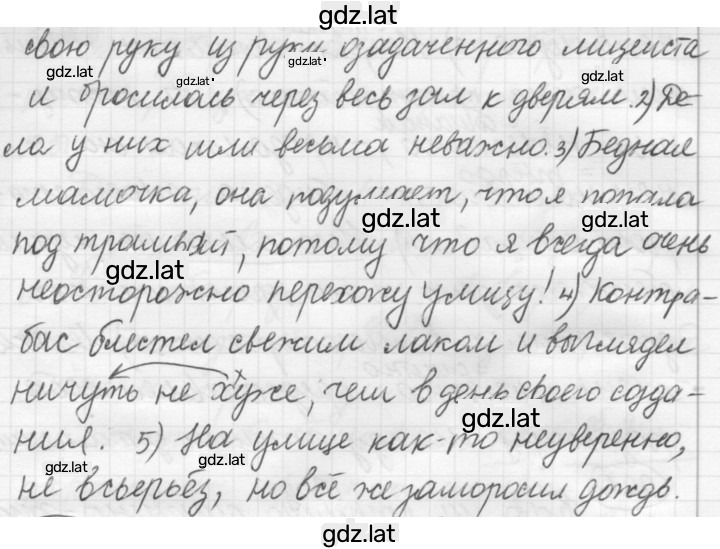 gdz.lat
свою руку из руки озадаченного лицеиста
gdz.lat gdz.lat gdz.lat gdz.lat
и бросилась через весь зал к дверям. 2) Де-
ла у них шли весьма неважно. 3) Бедная
мамочка, она подумает, что я попала
gdz.lat gdz.lat
под трамвай, потому что я всегда очень
gdz.lat
неосторожно перехожу улицу! 4) Контра-
бас блестел свежим лаком и выглядел
gdz.lat
ничуть не хуже, чем в день своего созда-
gdz.lat
ния. 5) На улице как-то неуверенно,
gdz.lat gdz.lat
не всерьёз, но всё же заморосил дождь.
gdz.lat